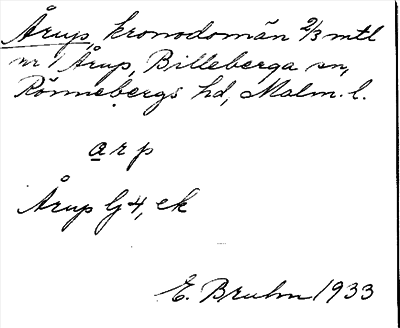 Årup, kronodomän 2/3 mtl
nr 1 Årup, Billeberga sn,
Rönnebergs hd, Malm. l.
arp
Årup lj 4, ek
E. Bruhn 1933